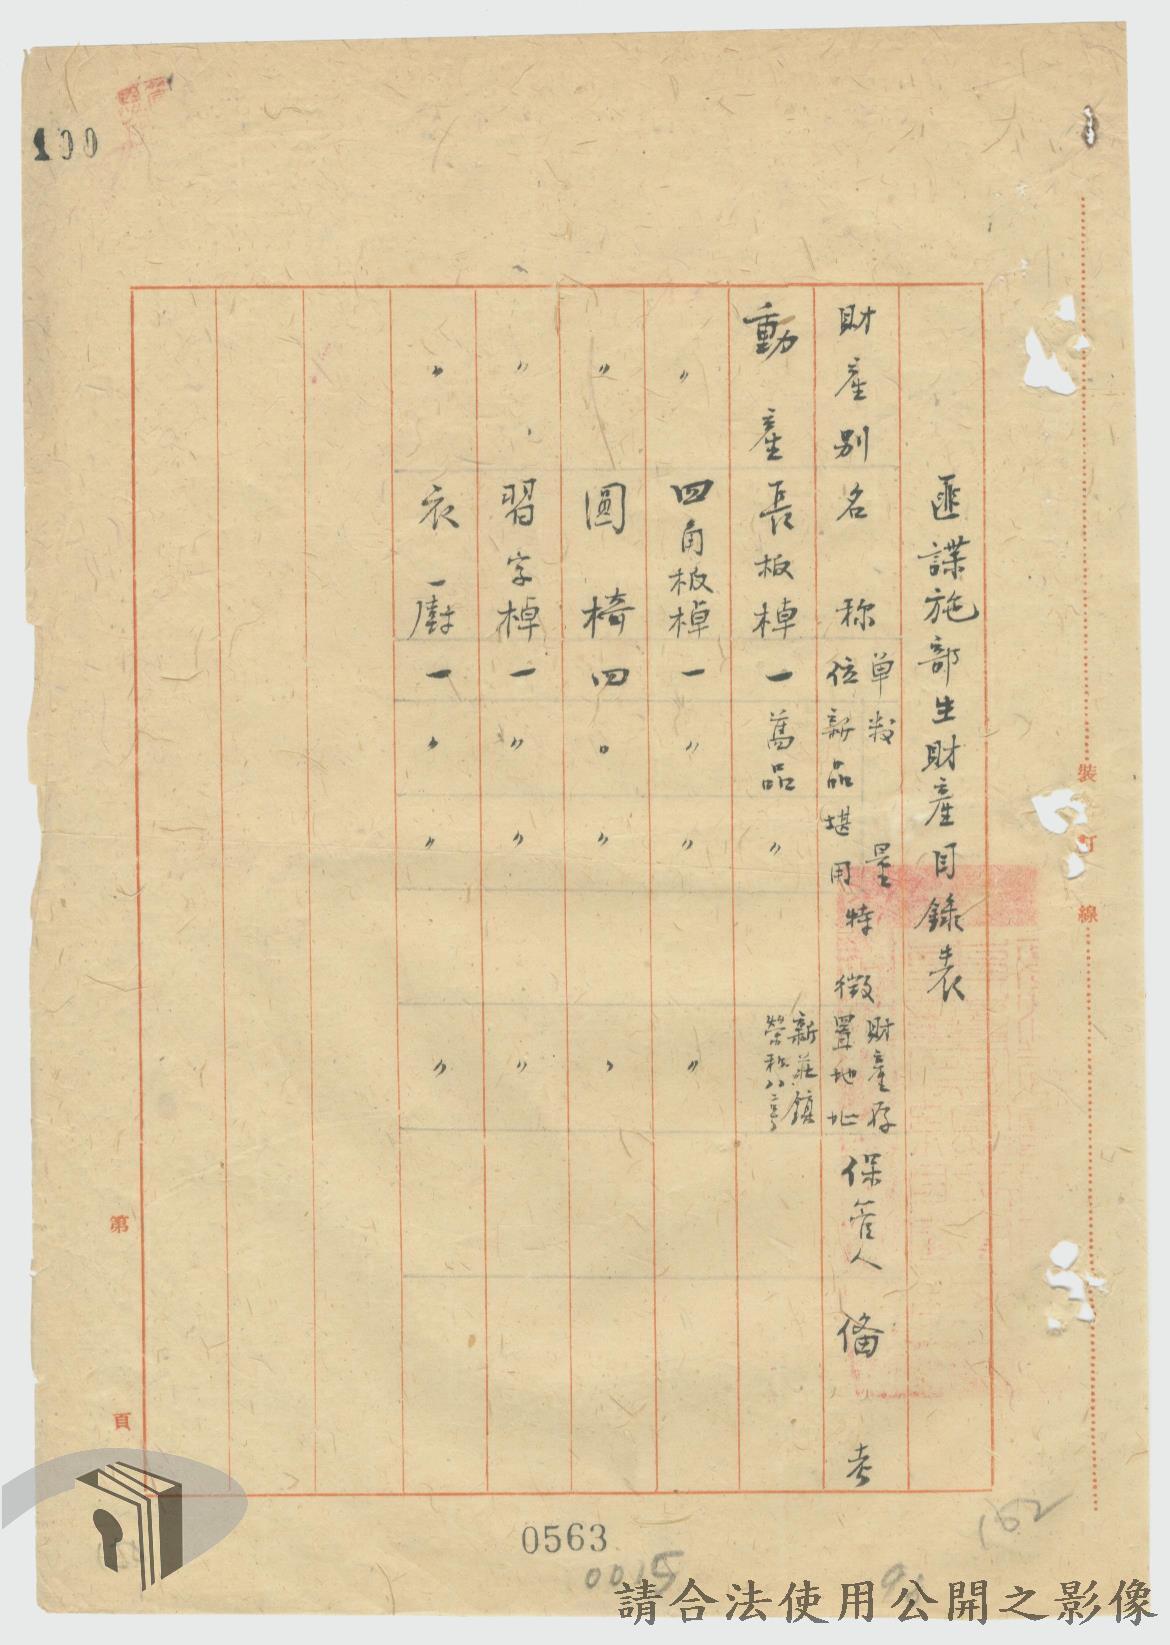 100
裝訂線
匪諜施部生財產目錄表
財產別
名称
单位
数量
新品
堪用
特徵
財產存置地址
保管人
備考
動產 長板棹 一 旧品 〃 新莊鎮
〃 四角板棹 一 〃 〃 〃
〃 圓椅 四 〃 〃 〃
〃 習字棹 一 〃 〃 〃
〃 衣廚 一 〃 〃 〃
第 頁
0563
0015
162
請合法使用公開之影像